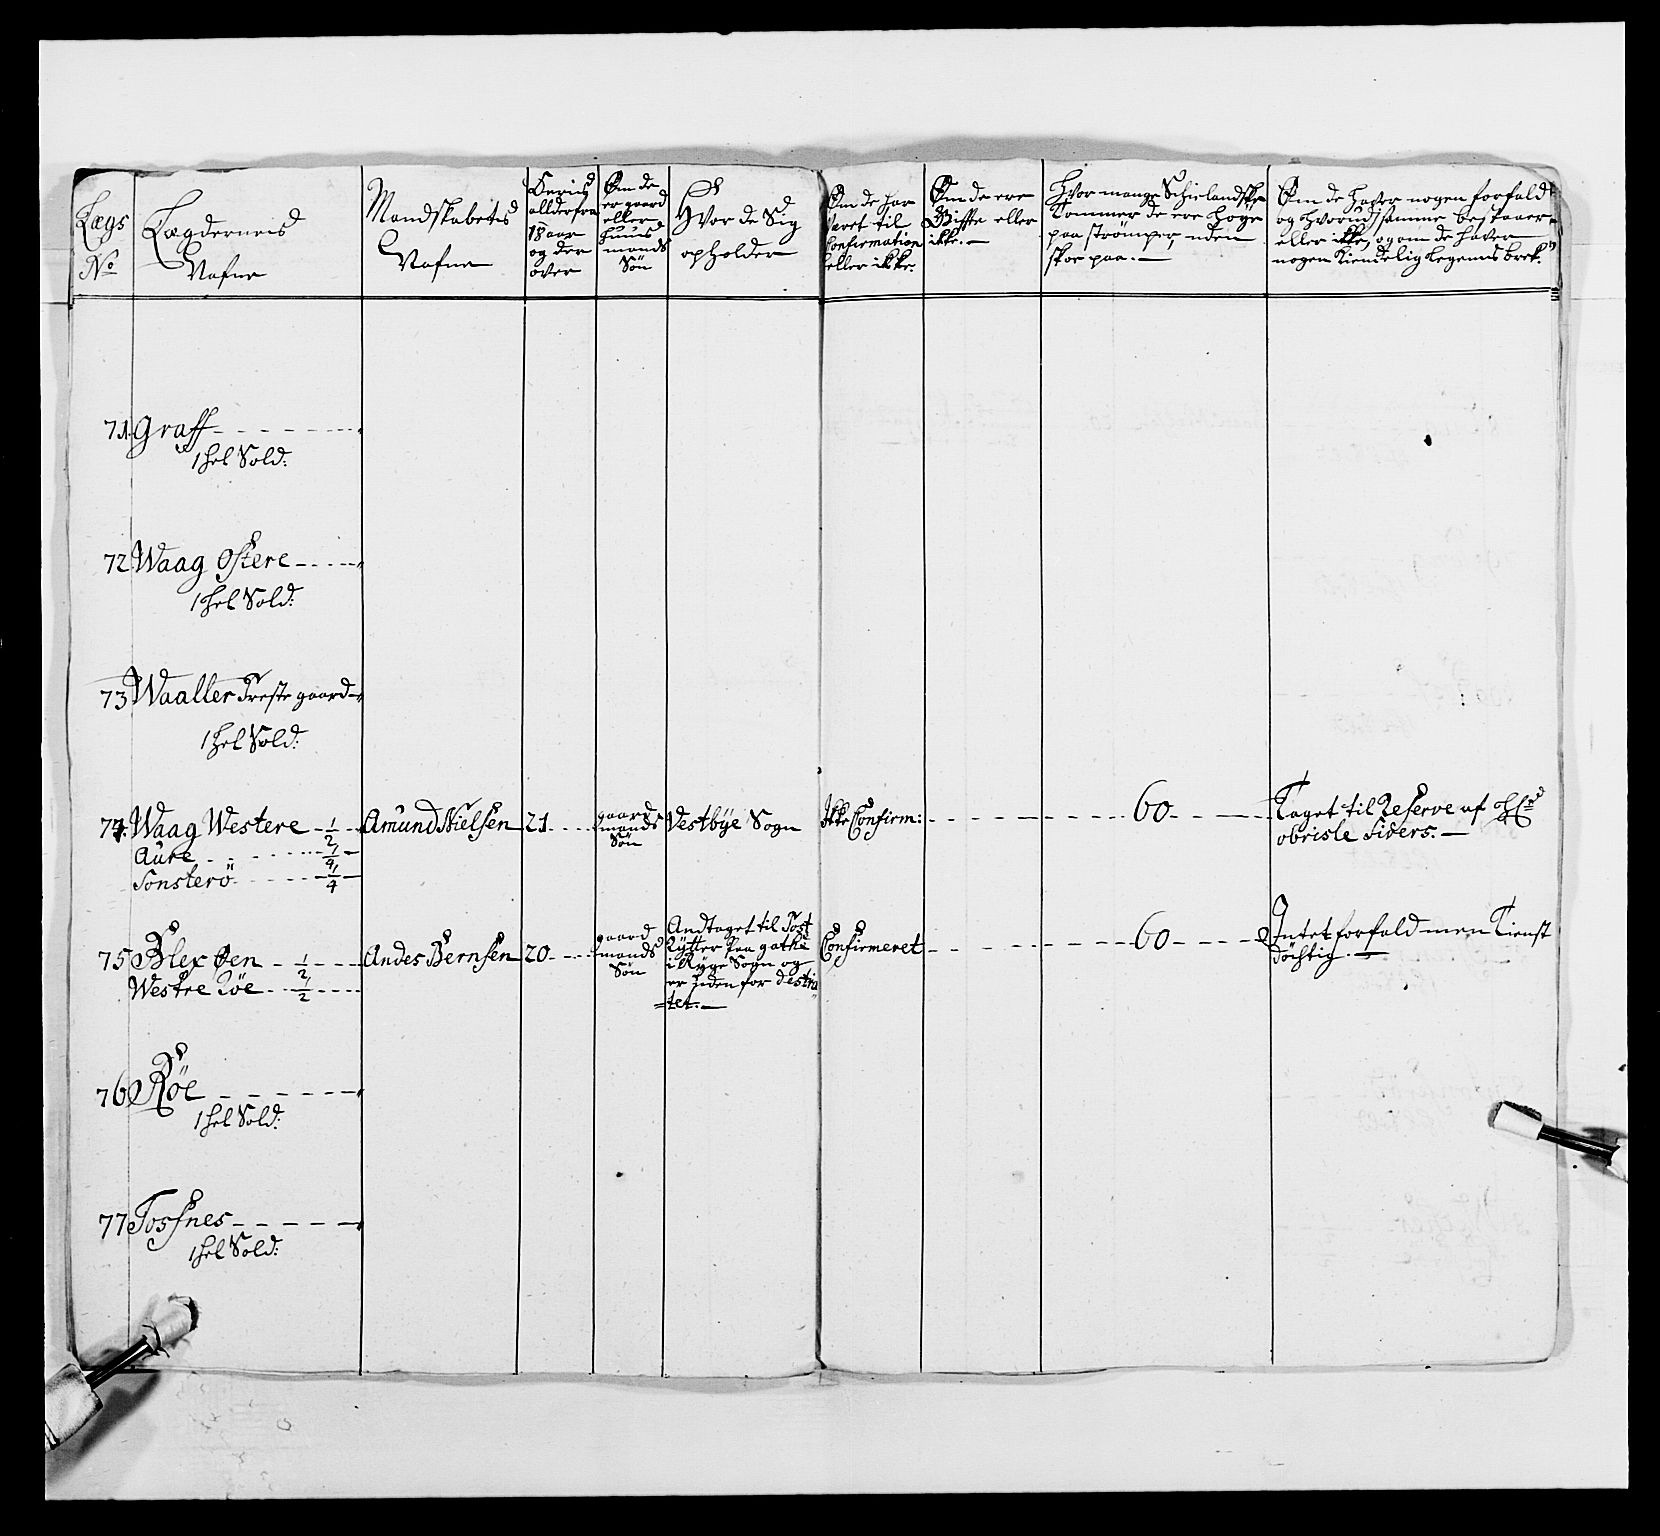 Lægs
No
Lægdernes
Nafne
Mandskabetes
Nafne
Deris
allder fra
18 aar
og der
over
Om de
er gaard
eller
Huus
mands
Søn
Hvor de Sig
opholder
Om de har
været til
Confirmation
eller ikke.
Om de ere
Gifte eller
ikke.
Hvor mange Schielandske
Tommer de ere høye
paa strømper, uden
skoe paa.
Om de haver nogen forfald
og hvorudj samme bestaaer
eller ikke, og om de haver
nogen Kiendelig Legems brek.
71. Graff
1 hel Sold:
72 Waag Ostere
1 hel Sold:
73 Waaller Preste gaard
1 hel Sold:
74. Waag Westere 1/2
Aure 1/4
Sonsterö 1/4
Amund Nielsen
21
gaard
mands
Søn
Vestbye Sogn
Ikke Confirm:
60
Taget til Reserve af
obriste Sivers.
75 Blex Øen 1/2
Westre Röe 1/2
Andes Bernsen
20
gaard
mands
Søn
Andtaget til Post
Rytter paa
i Ryge Sogn og
er uden for destric
=tet.
Confirmeret
60
Intet forfald men Tienst
döchtig.
76 Röe
1 hel Sold:
77 Tosfnes
1 hel Sold: